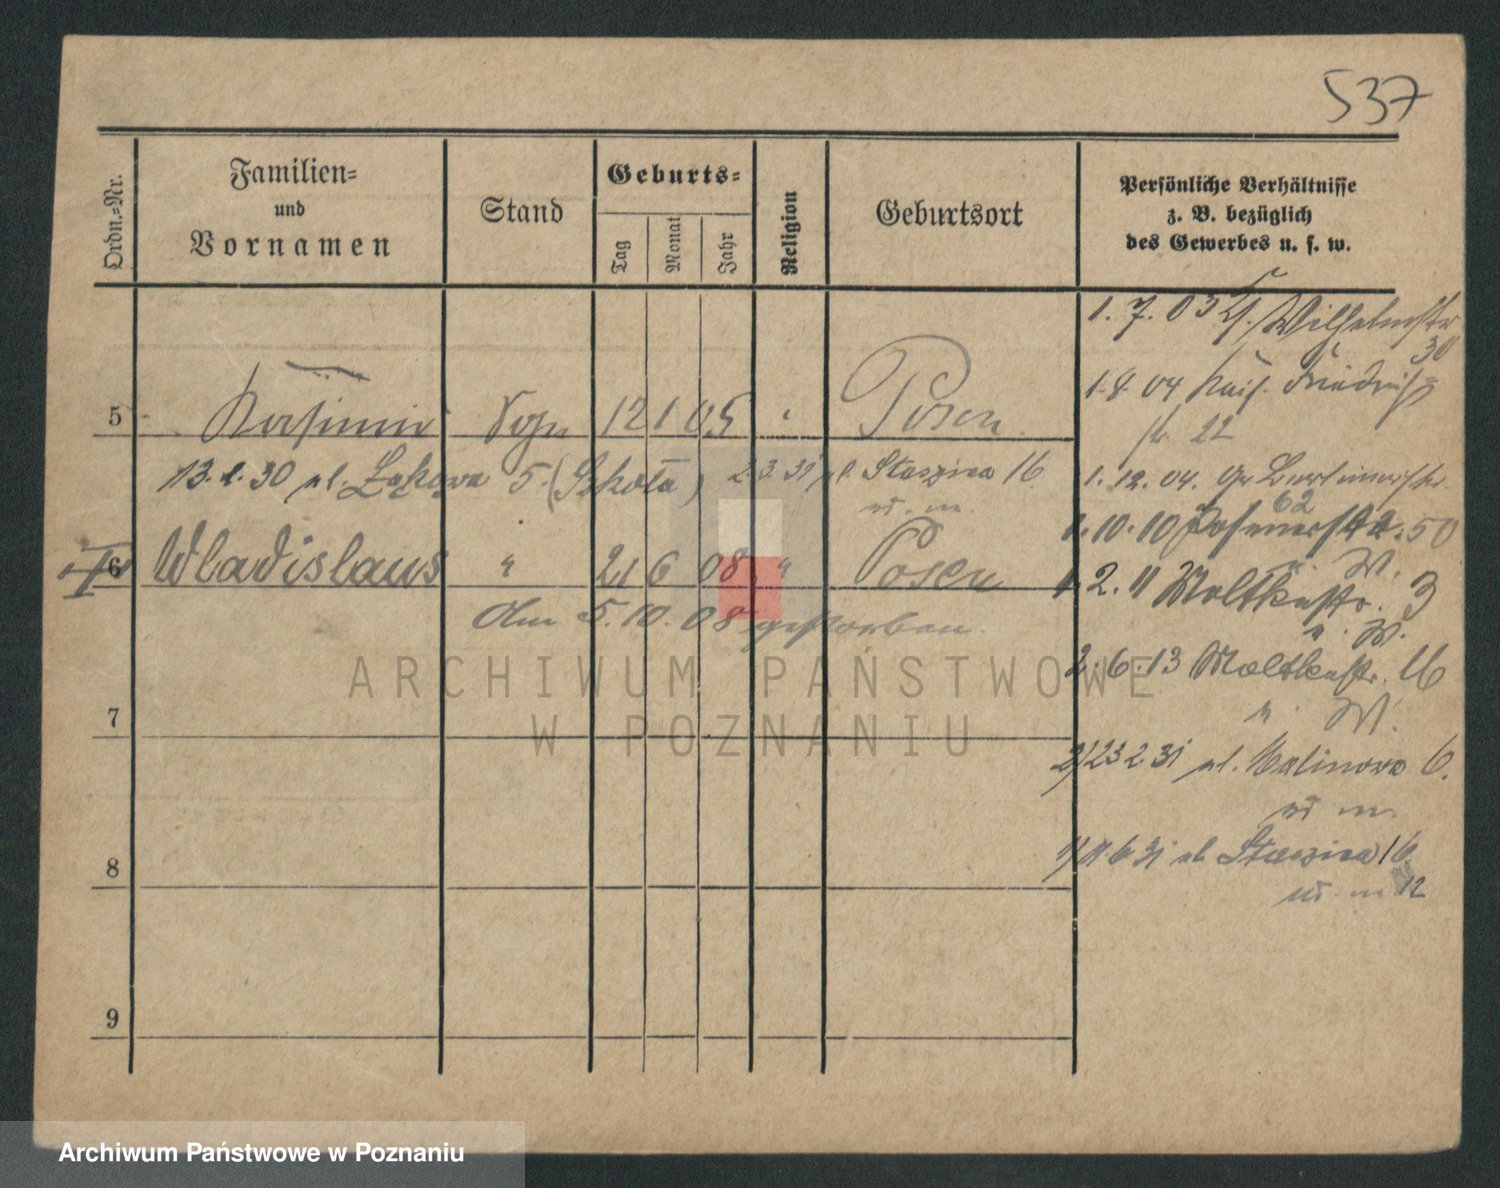 537
Ordn.=Nr.
Familien=
und
Vornamen
Stand
Geburts=
Tag
Monat
Jahr
Religion
Geburtsort
Persönliche Verhältnisse
z. B. bezüglich
des Gewerbes u. s. w.
1. 7. 03 Wilhelmstr
30
1. 8. 04 Kais. Friedrich=
str 22
5 Kasimir 12 1 05 " Posen
13. 2. 30 ul. Łąkowa 5. (Szkoła) 2.3.31 ul. Staszica 16
1. 12. 04. Gr Berlinerstr.
62
1. 10. 10 Posenerstr. 50
W.
6 Wladislaus " 21 6 08 " Posen
Am 5. 10. 08 gestorben.
1. 2. 11 Moltkestr. 3
" W.
2. 6. 13 Moltkestr. 16
" W.
ARCHIWUM PAŃSTWOWE
W POZNANIU
7
2) 23 2. 31 ul. Malinowa 6.
1) 11. 6 31 ul. Staszica 16
12
8
9
Archiwum Państwowe w Poznaniu